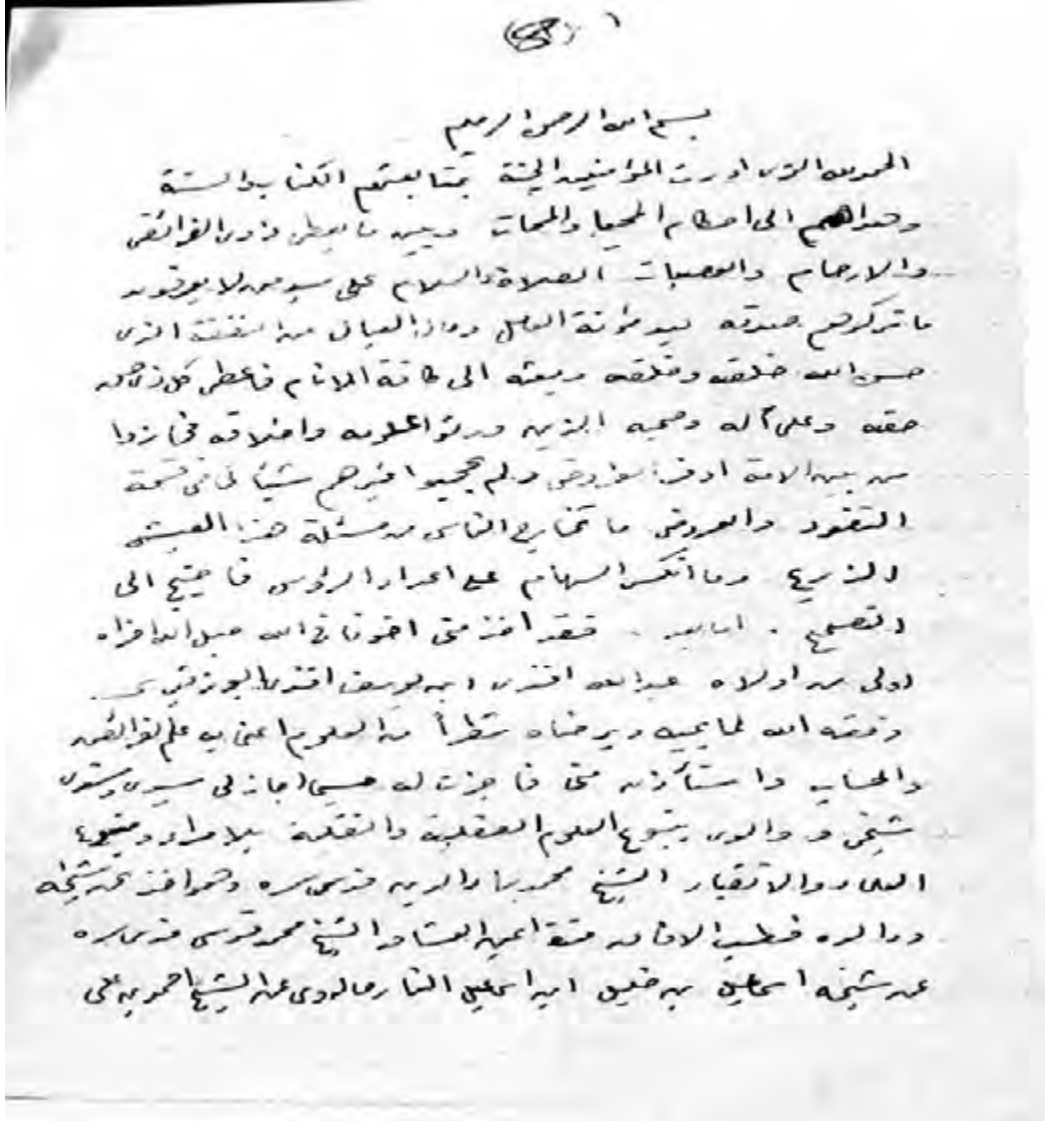 ١
بسم الله الرحمن الرحيم
الحمد لله الذى اورث المؤمنين الجنة بمتابعتهم الكتاب والسنة
وهداهم الى احكام المحيا والممات وبين ما يعطى ذوى الفرائض
والارحام والعصبات الصلاة والسلام على سيد من لا يورثون
ما تركوهم صدقة بعد مؤنة العامل العيال من النفقة الذى
حسن الله خلقه وخلقه وبعثه الى كافة الانام فاعطى كل ذى حق
حقه وعلى آله وصحبه الذين ورثوا علومه واخلاقه فحازوا
من بين الامة اوفر ولم يحجبوا غيرهم شيئا فى قسمة
النقود والعروض ما الناس من مسئلة هذا العيش
وما انكسر السهام على اعداد الرؤس فاحتيج الى
التصحيح . اما بعد . فقد اخذ منى اخونا فى الله
اولى من اولاه عبد الله افندى ابن يوسف افندى
وفقه الله لما يحبه ويرضاه شطرا من العلوم اعنى به علم الفرائض
والحساب واستأذن منى فاجزت له حسبما اجاز لى سيدى وسندى
شيخى و والدى ينبوع العلوم العقلية والنقلية بلا مراء
العلماء والاتقياء الشيخ محمد بهاء الدين قدس سره وهو اخذ عن شيخه
ووالده قطب الشيخ محمد قدسى قدس سره
عن شيخه اسماعيل بن خليل ابن اسماعيل وهو روى عن الشيخ احمد بن على